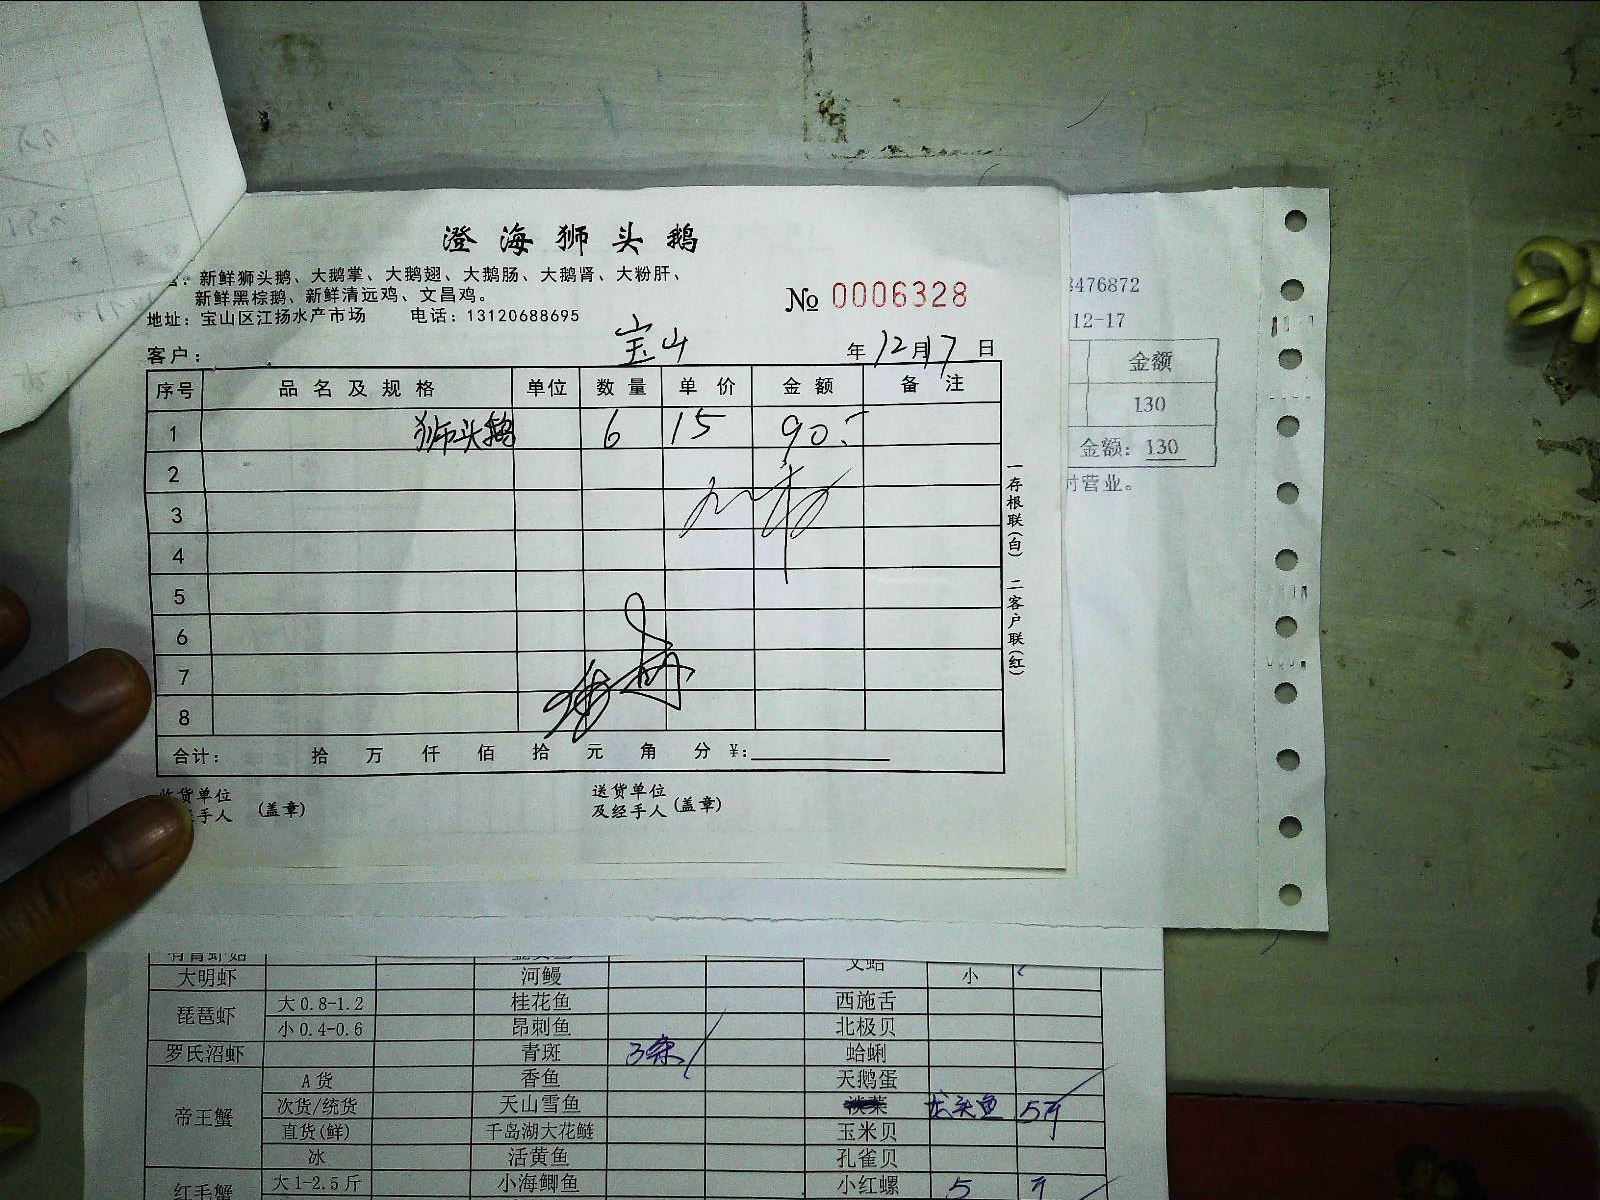 澄海狮头鹅
新鲜狮头鹅、大鹅掌、大鹅翅、大鹅肠、大鹅肾、大粉肝、
新鲜黑棕鹅、新鲜清远鸡、文昌鸡。
地址：宝山区江扬水产市场 电话：13120688695
№ 0006328
客户： 宝山 年 12 月 17 日
序号 品名及规格 单位 数量 单价 金额 备注
1 狮头鹅 6 15 90.-
2
3
4
5
6
7
8
合计： 拾 万 仟 佰 拾 元 角 分 ¥：
收货单位
经手人 (盖章)
送货单位
及经手人 (盖章)
一存根联(白) 二客户联(红)
3476872
12-17
金额
130
金额：130
时营业。
大明虾 河鳗 文蛤 小
琵琶虾 大0.8-1.2 桂花鱼 西施舌
小0.4-0.6 昂刺鱼 北极贝
罗氏沼虾 青斑 3条 蛤蜊
帝王蟹 A货 香鱼 天鹅蛋
次货/统货 天山雪鱼 龙头鱼 5斤
直货(鲜) 千岛湖大花鲢 玉米贝
冰 活黄鱼 孔雀贝
红毛蟹 大1-2.5斤 小海鲫鱼 小红螺 5 斤